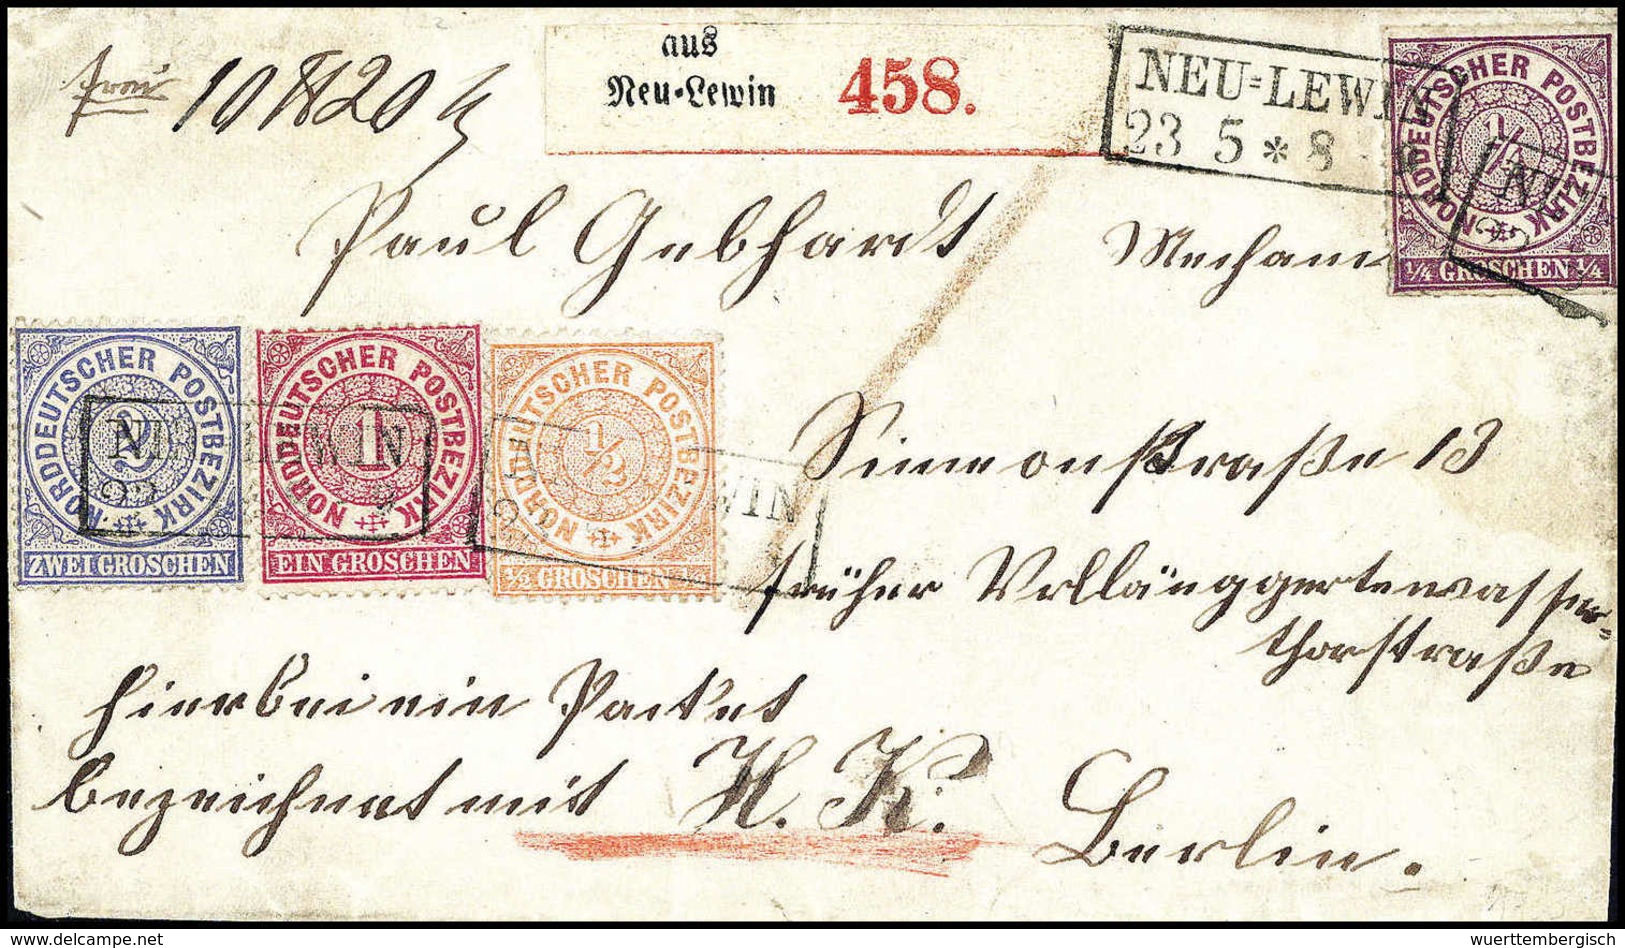 frei 10 ℔ 20
aus
Neu-Lewin
458.
NEU=LEWIN
23 5 * 8
NORDDEUTSCHER POSTBEZIRK
1/4
1/4 GROSCHEN 1/4
Paul Gebhardt Mechani
NORDDEUTSCHER POSTBEZIRK
2
ZWEI GROSCHEN
NORDDEUTSCHER POSTBEZIRK
1
EIN GROSCHEN
NORDDEUTSCHER POSTBEZIRK
1/2
1/2 GROSCHEN
LEWIN
WIN
Simeonstraße 13
früher
thorstraße
Hierbei ein Packet
bezeichnet mit H. K. Berlin.
wuerttembergisch